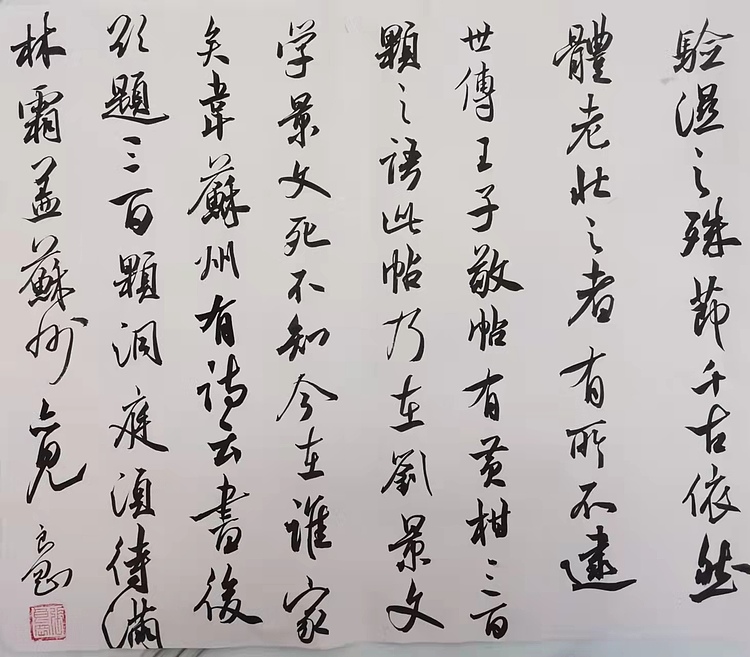 驗湿之殊節千古依然
體老壯之者有所不逮
世傳王子敬帖有黄柑三百
顆之語此帖乃在劉景文
学景文死不知今在誰家
矣韋蘇州有詩云書後
欲題三百顆洞庭須待滿
林霜蓋蘇州亦見
良